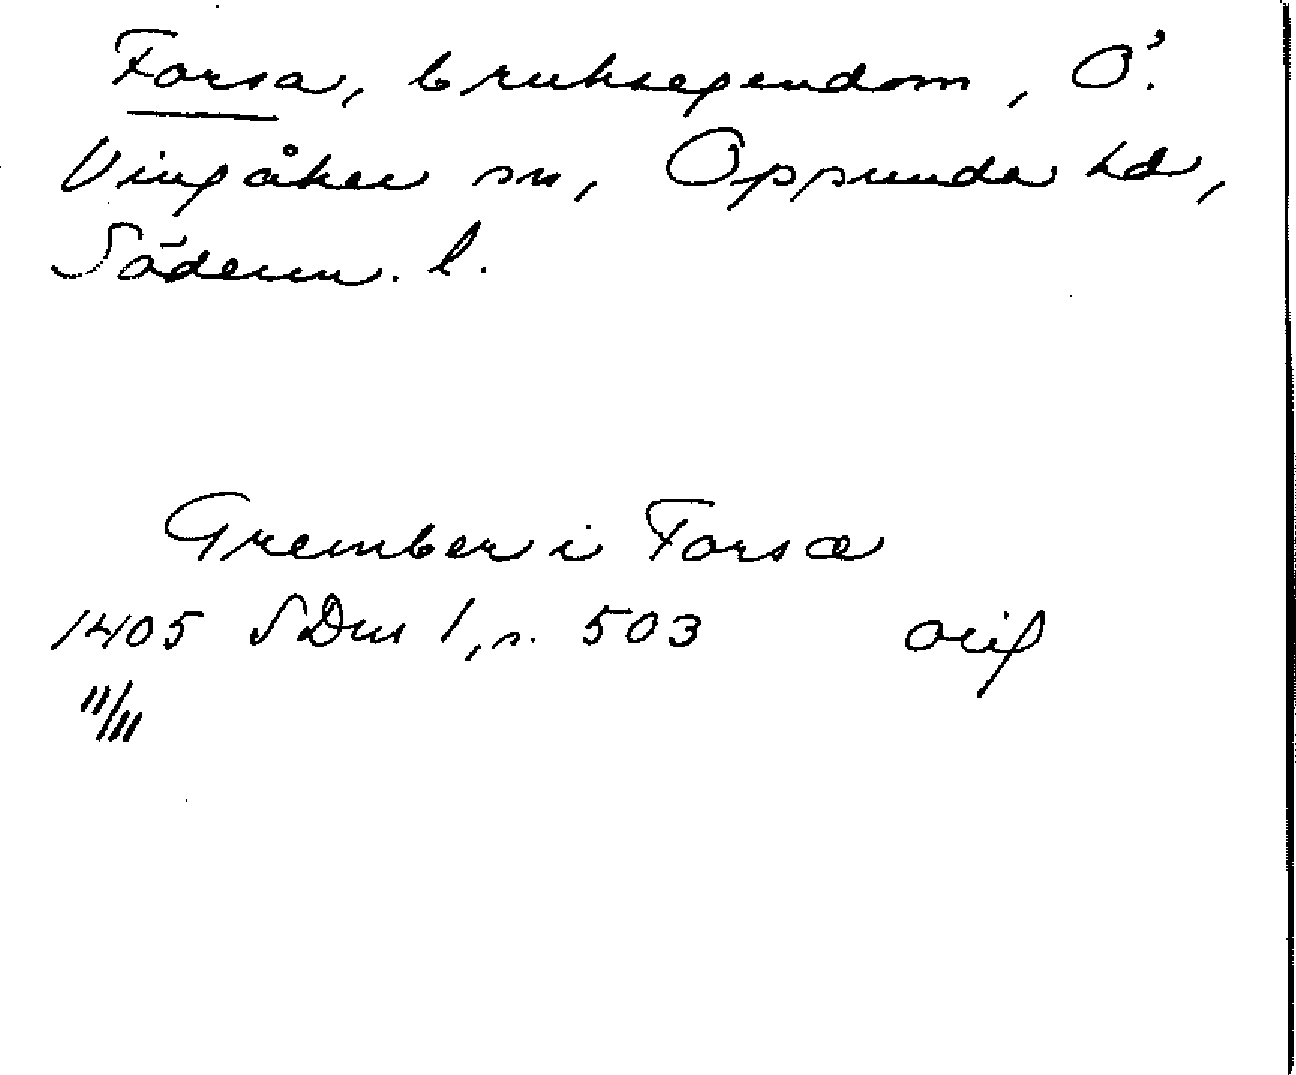 Forsa, bruksegendom, Ö.
Vingåker sn, Oppunda hd,
Söderm. l.
Grember i Forsæ
1405 SDns 1, s. 503 orig
11/11